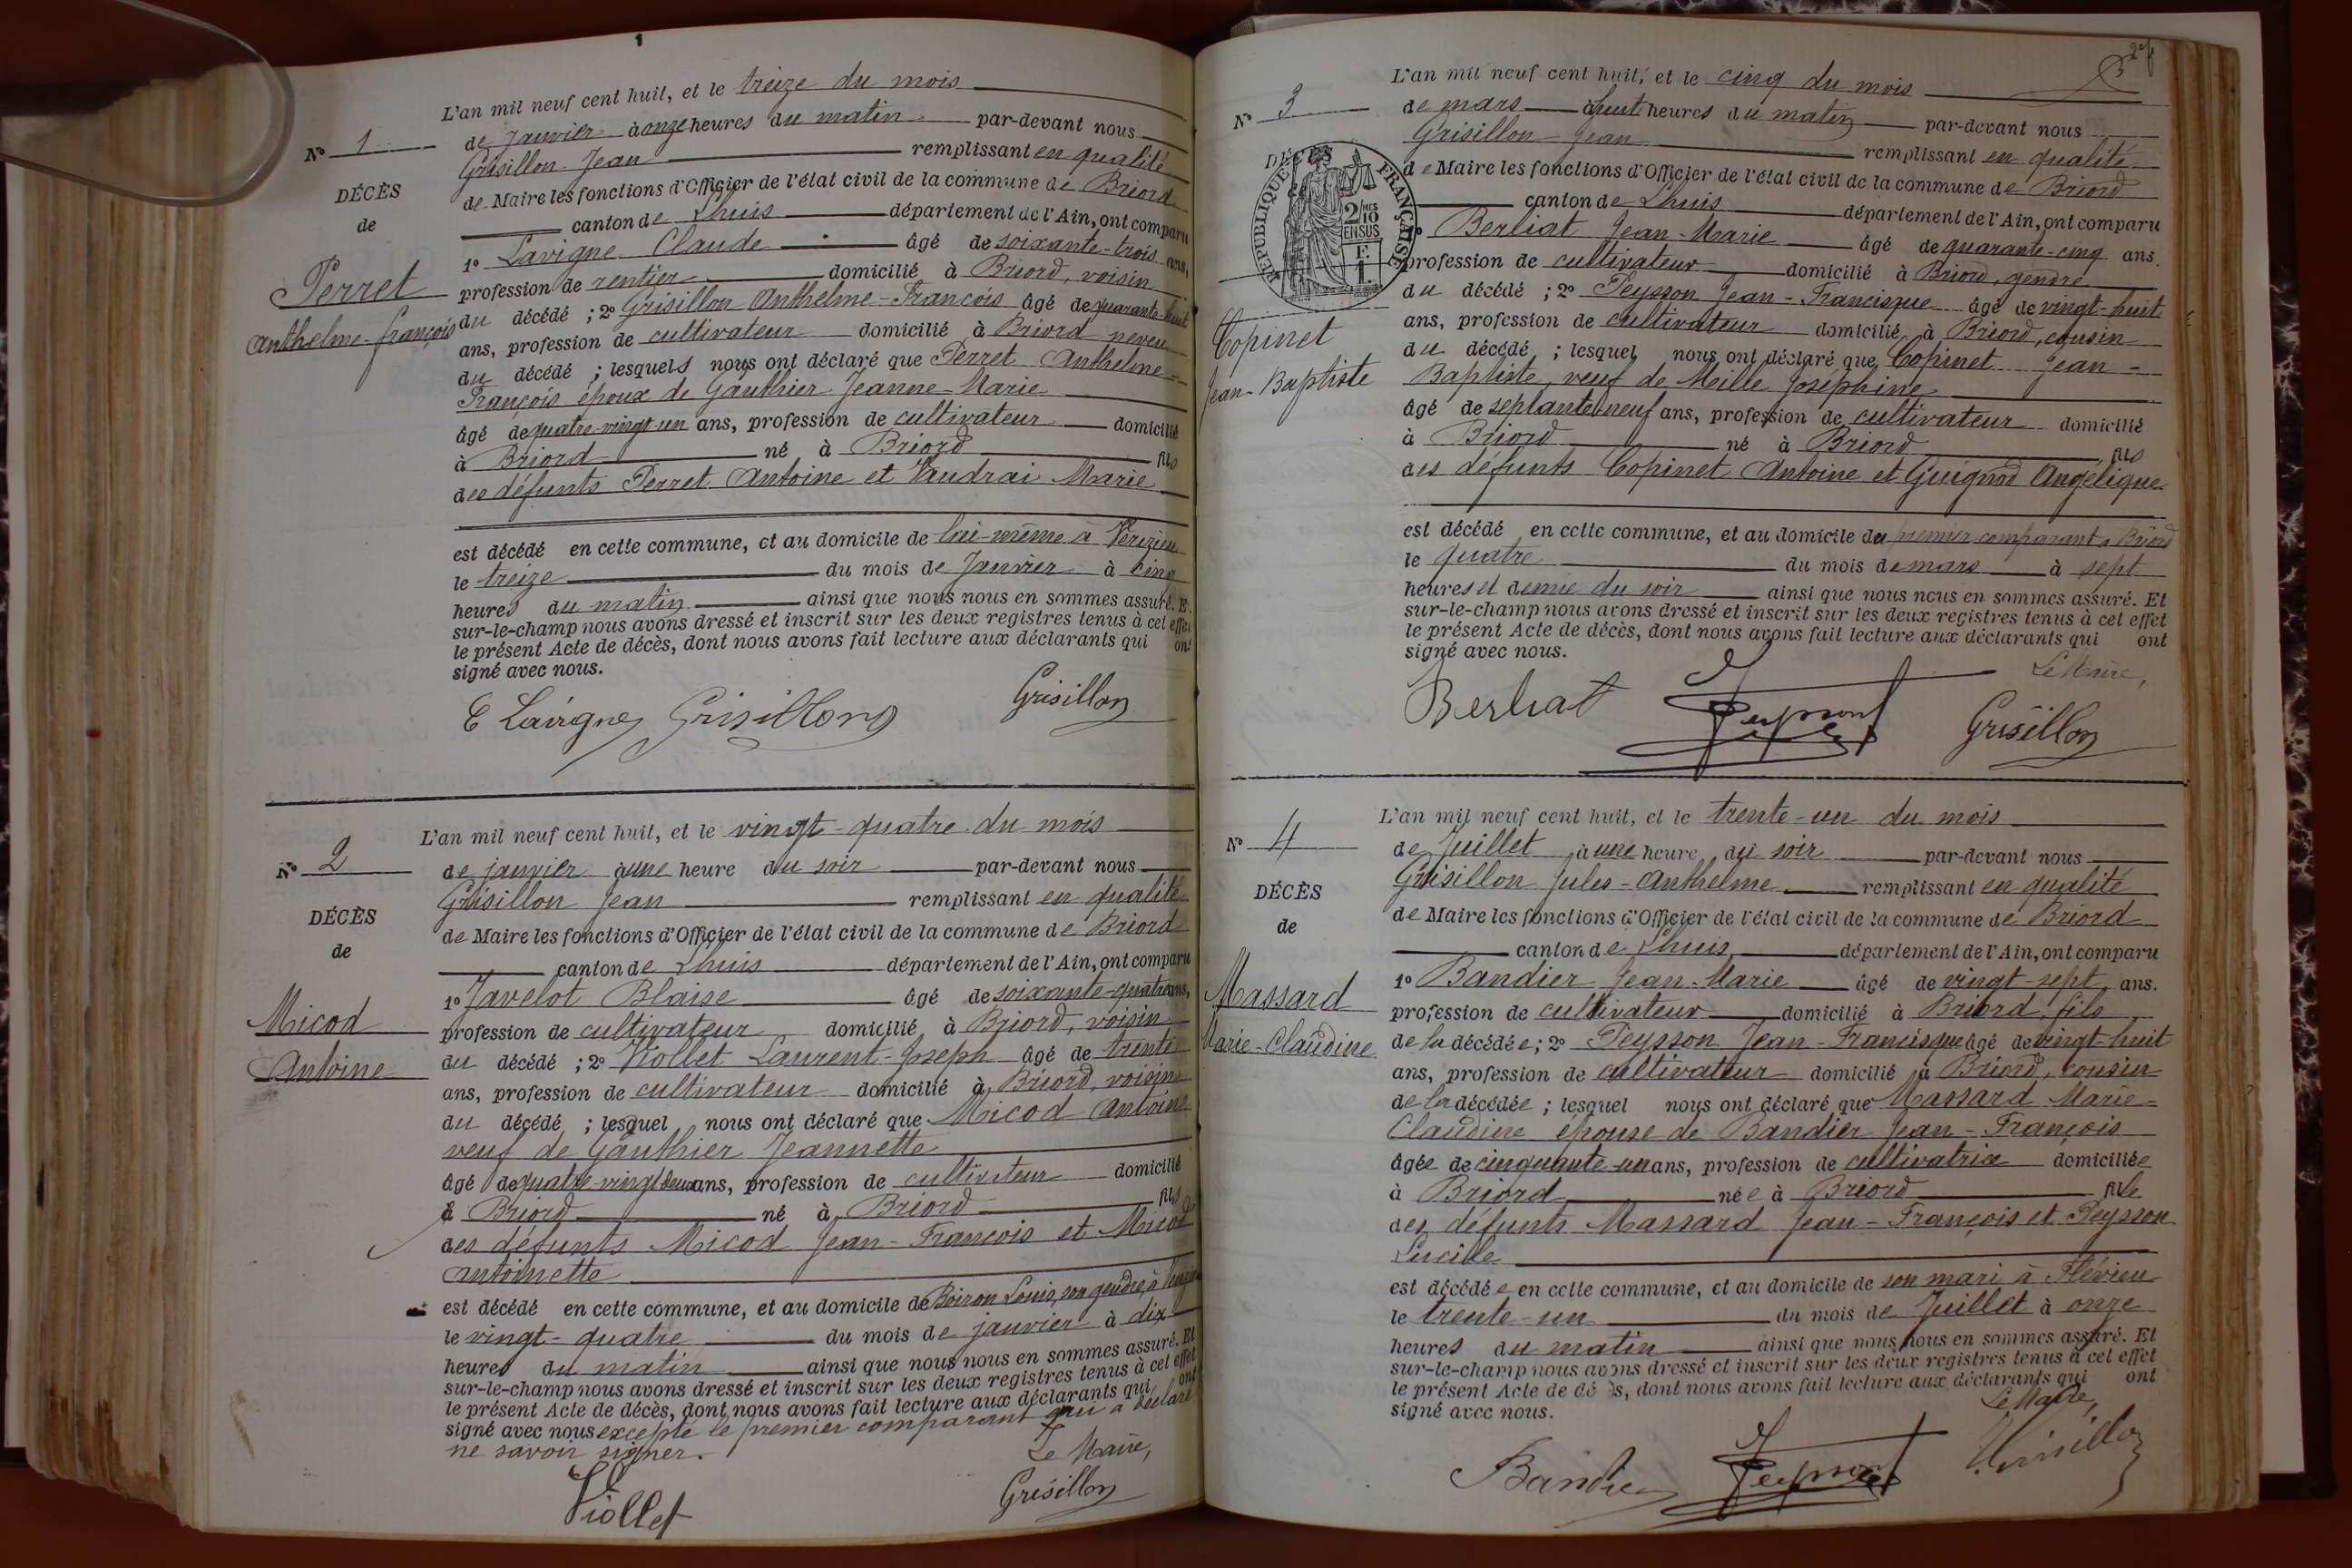 L'an mil neuf cent huit, et le treize du mois
N° 1
de Janvier à onze heures du matin par-devant nous
Grisillon Jean remplissant en qualité
DÉCÈS
de Maire les fonctions d'Officier de l'état civil de la commune de Briord
de
canton de Lhuis département de l'Ain, ont comparu
1° Lavigne Claude âgé de soixante-trois ans,
Perret
profession de rentier domicilié à Briord, voisin
Anthelme-françois
du décédé ; 2° Grisillon Anthelme-François âgé de quarante-huit
ans, profession de cultivateur domicilié à Briord neveu
du décédé ; lesquels nous ont déclaré que Perret Anthelme-
François époux de Gauthier Jeanne-Marie
âgé de quatre-vingt-un ans, profession de cultivateur domicilié
à Briord né à Briord fils
des défunts Perret Antoine et Vaudrai Marie
est décédé en cette commune, et au domicile de lui-même à Vérizieu
le treize du mois de Janvier à cinq
heures du matin ainsi que nous nous en sommes assuré. Et
sur-le-champ nous avons dressé et inscrit sur les deux registres tenus à cet effet
le présent Acte de décès, dont nous avons fait lecture aux déclarants qui ont
signé avec nous.
Lavigne Grisillon Grisillon
L'an mil neuf cent huit, et le vingt-quatre du mois
N° 2
de janvier à une heure du soir par-devant nous
Grisillon Jean remplissant en qualité
DÉCÈS
de Maire les fonctions d'Officier de l'état civil de la commune de Briord
de
canton de Lhuis département de l'Ain, ont comparu
1° Javelot Blaise âgé de soixante-quatre ans,
Micod
profession de cultivateur domicilié à Briord, voisin
Antoine
du décédé ; 2° Viollet Laurent-Joseph âgé de trente
ans, profession de cultivateur domicilié à Briord, voisin
du décédé ; lesquel nous ont déclaré que Micod Antoine
veuf de Gauthier Jeannette
âgé de quatre-vingt deux ans, profession de cultivateur domicilié
à Briord né à Briord fils
des défunts Micod Jean-François et Micod
Antoinette
est décédé en cette commune, et au domicile de Boiron Louis, son gendre, à
le vingt-quatre du mois de janvier à dix
heures du matin ainsi que nous nous en sommes assuré. Et
sur-le-champ nous avons dressé et inscrit sur les deux registres tenus à cet effet
le présent Acte de décès, dont nous avons fait lecture aux déclarants qui ont
signé avec nous excepté le premier comparant qui a déclaré
ne savoir signer.
Le Maire,
Viollet Grisillon
L'an mil neuf cent huit, et le cinq du mois
N° 3
de mars à huit heures du matin par-devant nous
Grisillon Jean remplissant en qualité
DÉCÈS
RÉPUBLIQUE FRANÇAISE
2/10 MES
EN SUS
de Maire les fonctions d'Officier de l'état civil de la commune de Briord
canton de Lhuis département de l'Ain, ont comparu
Berliat Jean-Marie âgé de quarante-cinq ans.
profession de cultivateur domicilié à Briord, gendre
du décédé ; 2° Peysson Jean-Francisque âgé de vingt-huit
Copinet
ans, profession de cultivateur domicilié à Briord, cousin
Jean-Baptiste
du décédé ; lesquel nous ont déclaré que Copinet Jean-
Baptiste, veuf de Meille Joséphine
âgé de septante-neuf ans, profession de cultivateur domicilié
à Briord né à Briord fils
des défunts Copinet Antoine et Guignod Angélique
est décédé en cette commune, et au domicile du premier comparant à Briord
le quatre du mois de mars à sept
heures et demie du soir ainsi que nous nous en sommes assuré. Et
sur-le-champ nous avons dressé et inscrit sur les deux registres tenus à cet effet
le présent Acte de décès, dont nous avons fait lecture aux déclarants qui ont
signé avec nous.
Le Maire,
Berliat Peysson Grisillon
L'an mil neuf cent huit, et le trente-un du mois
N° 4
de Juillet à une heure du soir par-devant nous
Grisillon Jules-Anthelme remplissant en qualité
DÉCÈS
de Maire les fonctions d'Officier de l'état civil de la commune de Briord
de
canton de Lhuis département de l'Ain, ont comparu
1° Bandier Jean-Marie âgé de vingt-sept ans.
Massard
profession de cultivateur domicilié à Briord, fils
Marie-Claudine
de la décédée ; 2° Peysson Jean-Francisque âgé de vingt-huit
ans, profession de cultivateur domicilié à Briord, cousin
de la décédée ; lesquel nous ont déclaré que Massard Marie-
Claudine épouse de Bandier Jean-François
âgée de cinquante-un ans, profession de cultivatrice domiciliée
à Briord née à Briord fille
des défunts Massard Jean-François et Peysson
Lucile
est décédée en cette commune, et au domicile de son mari à Flévieu
le trente-un du mois de Juillet à onze
heures du matin ainsi que nous nous en sommes assuré. Et
sur-le-champ nous avons dressé et inscrit sur les deux registres tenus à cet effet
le présent Acte de décès, dont nous avons fait lecture aux déclarants qui ont
signé avec nous.
Le Maire,
Bandier Peysson Grisillon